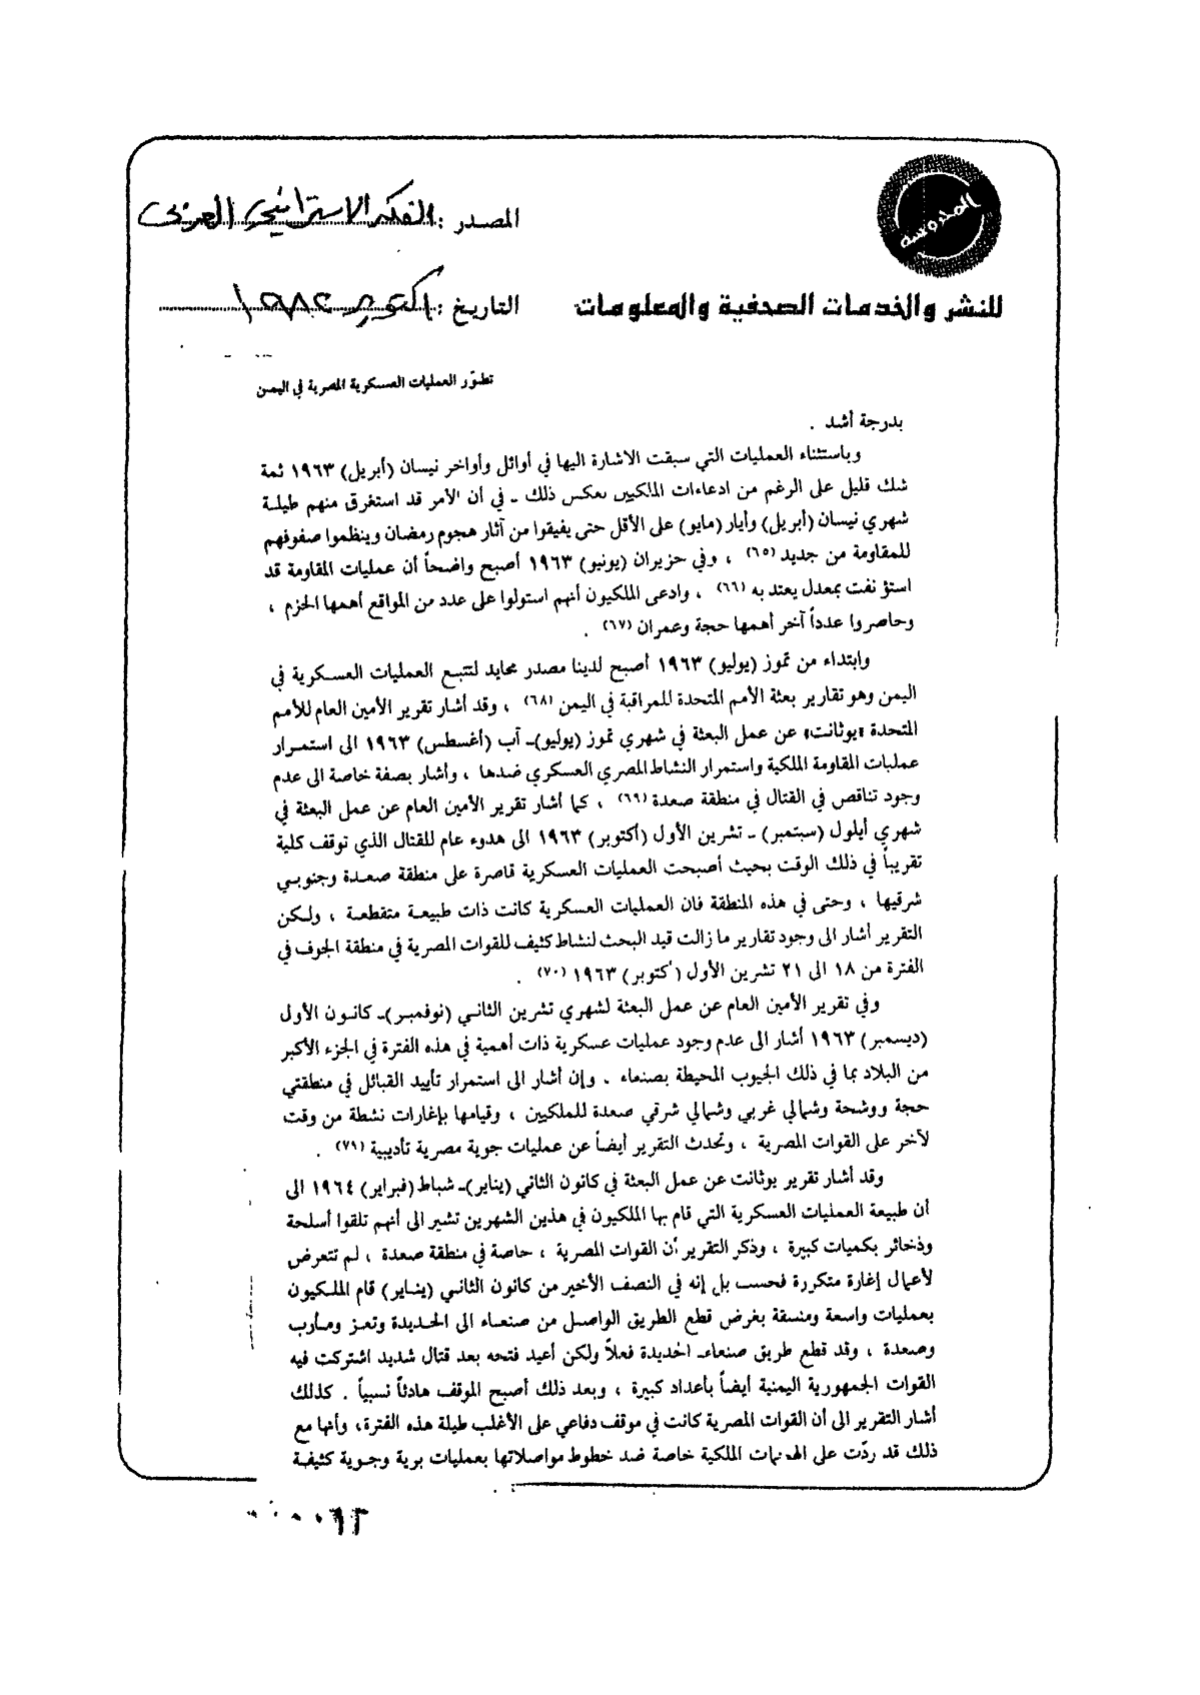 المحروسة
المصدر : الفكر الاستراتيجي العربي
للنشر والخدمات الصحفية والمعلومات
التاريخ : أكتوبر ١٩٨٢
تطوّر العمليات العسكرية المصرية في اليمن
بدرجة أشد .
وباستثناء العمليات التي سبقت الاشارة اليها في أوائل وأواخر نيسان (أبريل) ١٩٦٣ ثمة
شك قليل على الرغم من ادعاءات الملكيين بعكس ذلك - في أن الأمر قد استغرق منهم طيلة
شهري نيسان (أبريل) وأيار (مايو) على الأقل حتى يفيقوا من آثار هجوم رمضان وينظموا صفوفهم
للمقاومة من جديد (٦٥) ، وفي حزيران (يونيو) ١٩٦٣ أصبح واضحاً أن عمليات المقاومة قد
استؤنفت بمعدل يعتد به (٦٦) ، وادعى الملكيون أنهم استولوا على عدد من المواقع أهمها الحزم ،
وحاصروا عدداً آخر أهمها حجة وعمران (٦٧) .
وابتداء من تموز (يوليو) ١٩٦٣ أصبح لدينا مصدر محايد لتتبع العمليات العسكرية في
اليمن وهو تقارير بعثة الأمم المتحدة للمراقبة في اليمن (٦٨) ، وقد أشار تقرير الأمين العام للأمم
المتحدة «يوثانت» عن عمل البعثة في شهري تموز (يوليو)- آب (أغسطس) ١٩٦٣ الى استمرار
عمليات المقاومة الملكية واستمرار النشاط المصري العسكري ضدها ، وأشار بصفة خاصة الى عدم
وجود تناقص في القتال في منطقة صعدة (٦٩) ، كما أشار تقرير الأمين العام عن عمل البعثة في
شهري أيلول (سبتمبر) - تشرين الأول (أكتوبر) ١٩٦٣ الى هدوء عام للقتال الذي توقف كلية
تقريباً في ذلك الوقت بحيث أصبحت العمليات العسكرية قاصرة على منطقة صعدة وجنوبي
شرقيها ، وحتى في هذه المنطقة فان العمليات العسكرية كانت ذات طبيعة متقطعة ، ولكن
التقرير أشار الى وجود تقارير ما زالت قيد البحث لنشاط كثيف للقوات المصرية في منطقة الجوف في
الفترة من ١٨ الى ٢١ تشرين الأول (أكتوبر) ١٩٦٣ (٧٠) .
وفي تقرير الأمين العام عن عمل البعثة لشهري تشرين الثاني (نوفمبر)- كانون الأول
(ديسمبر) ١٩٦٣ أشار الى عدم وجود عمليات عسكرية ذات أهمية في هذه الفترة في الجزء الأكبر
من البلاد بما في ذلك الجيوب المحيطة بصنعاء . وإن أشار الى استمرار تأييد القبائل في منطقتي
حجة ووشحة وشمالي غربي وشمالي شرقي صعدة للملكيين ، وقيامها بإغارات نشطة من وقت
لآخر على القوات المصرية ، وتحدث التقرير أيضاً عن عمليات جوية مصرية تأديبية (٧٩) .
وقد أشار تقرير يوثانت عن عمل البعثة في كانون الثاني (يناير)- شباط (فبراير) ١٩٦٤ الى
أن طبيعة العمليات العسكرية التي قام بها الملكيون في هذين الشهرين تشير الى أنهم تلقوا أسلحة
وذخائر بكميات كبيرة ، وذكر التقرير أن القوات المصرية ، خاصة في منطقة صعدة ، لم تتعرض
لأعمال إغارة متكررة فحسب بل إنه في النصف الأخير من كانون الثاني (يناير) قام الملكيون
بعمليات واسعة ومنسقة بغرض قطع الطريق الواصل من صنعاء الى الحديدة وتعز ومأرب
وصعدة ، وقد قطع طريق صنعاء- الحديدة فعلاً ولكن أعيد فتحه بعد قتال شديد اشتركت فيه
القوات الجمهورية اليمنية أيضاً بأعداد كبيرة ، وبعد ذلك أصبح الموقف هادئاً نسبياً . كذلك
أشار التقرير الى أن القوات المصرية كانت في موقف دفاعي على الأغلب طيلة هذه الفترة، وأنها مع
ذلك قد ردّت على الهجمات الملكية خاصة ضد خطوط مواصلاتها بعمليات برية وجوية كثيفة